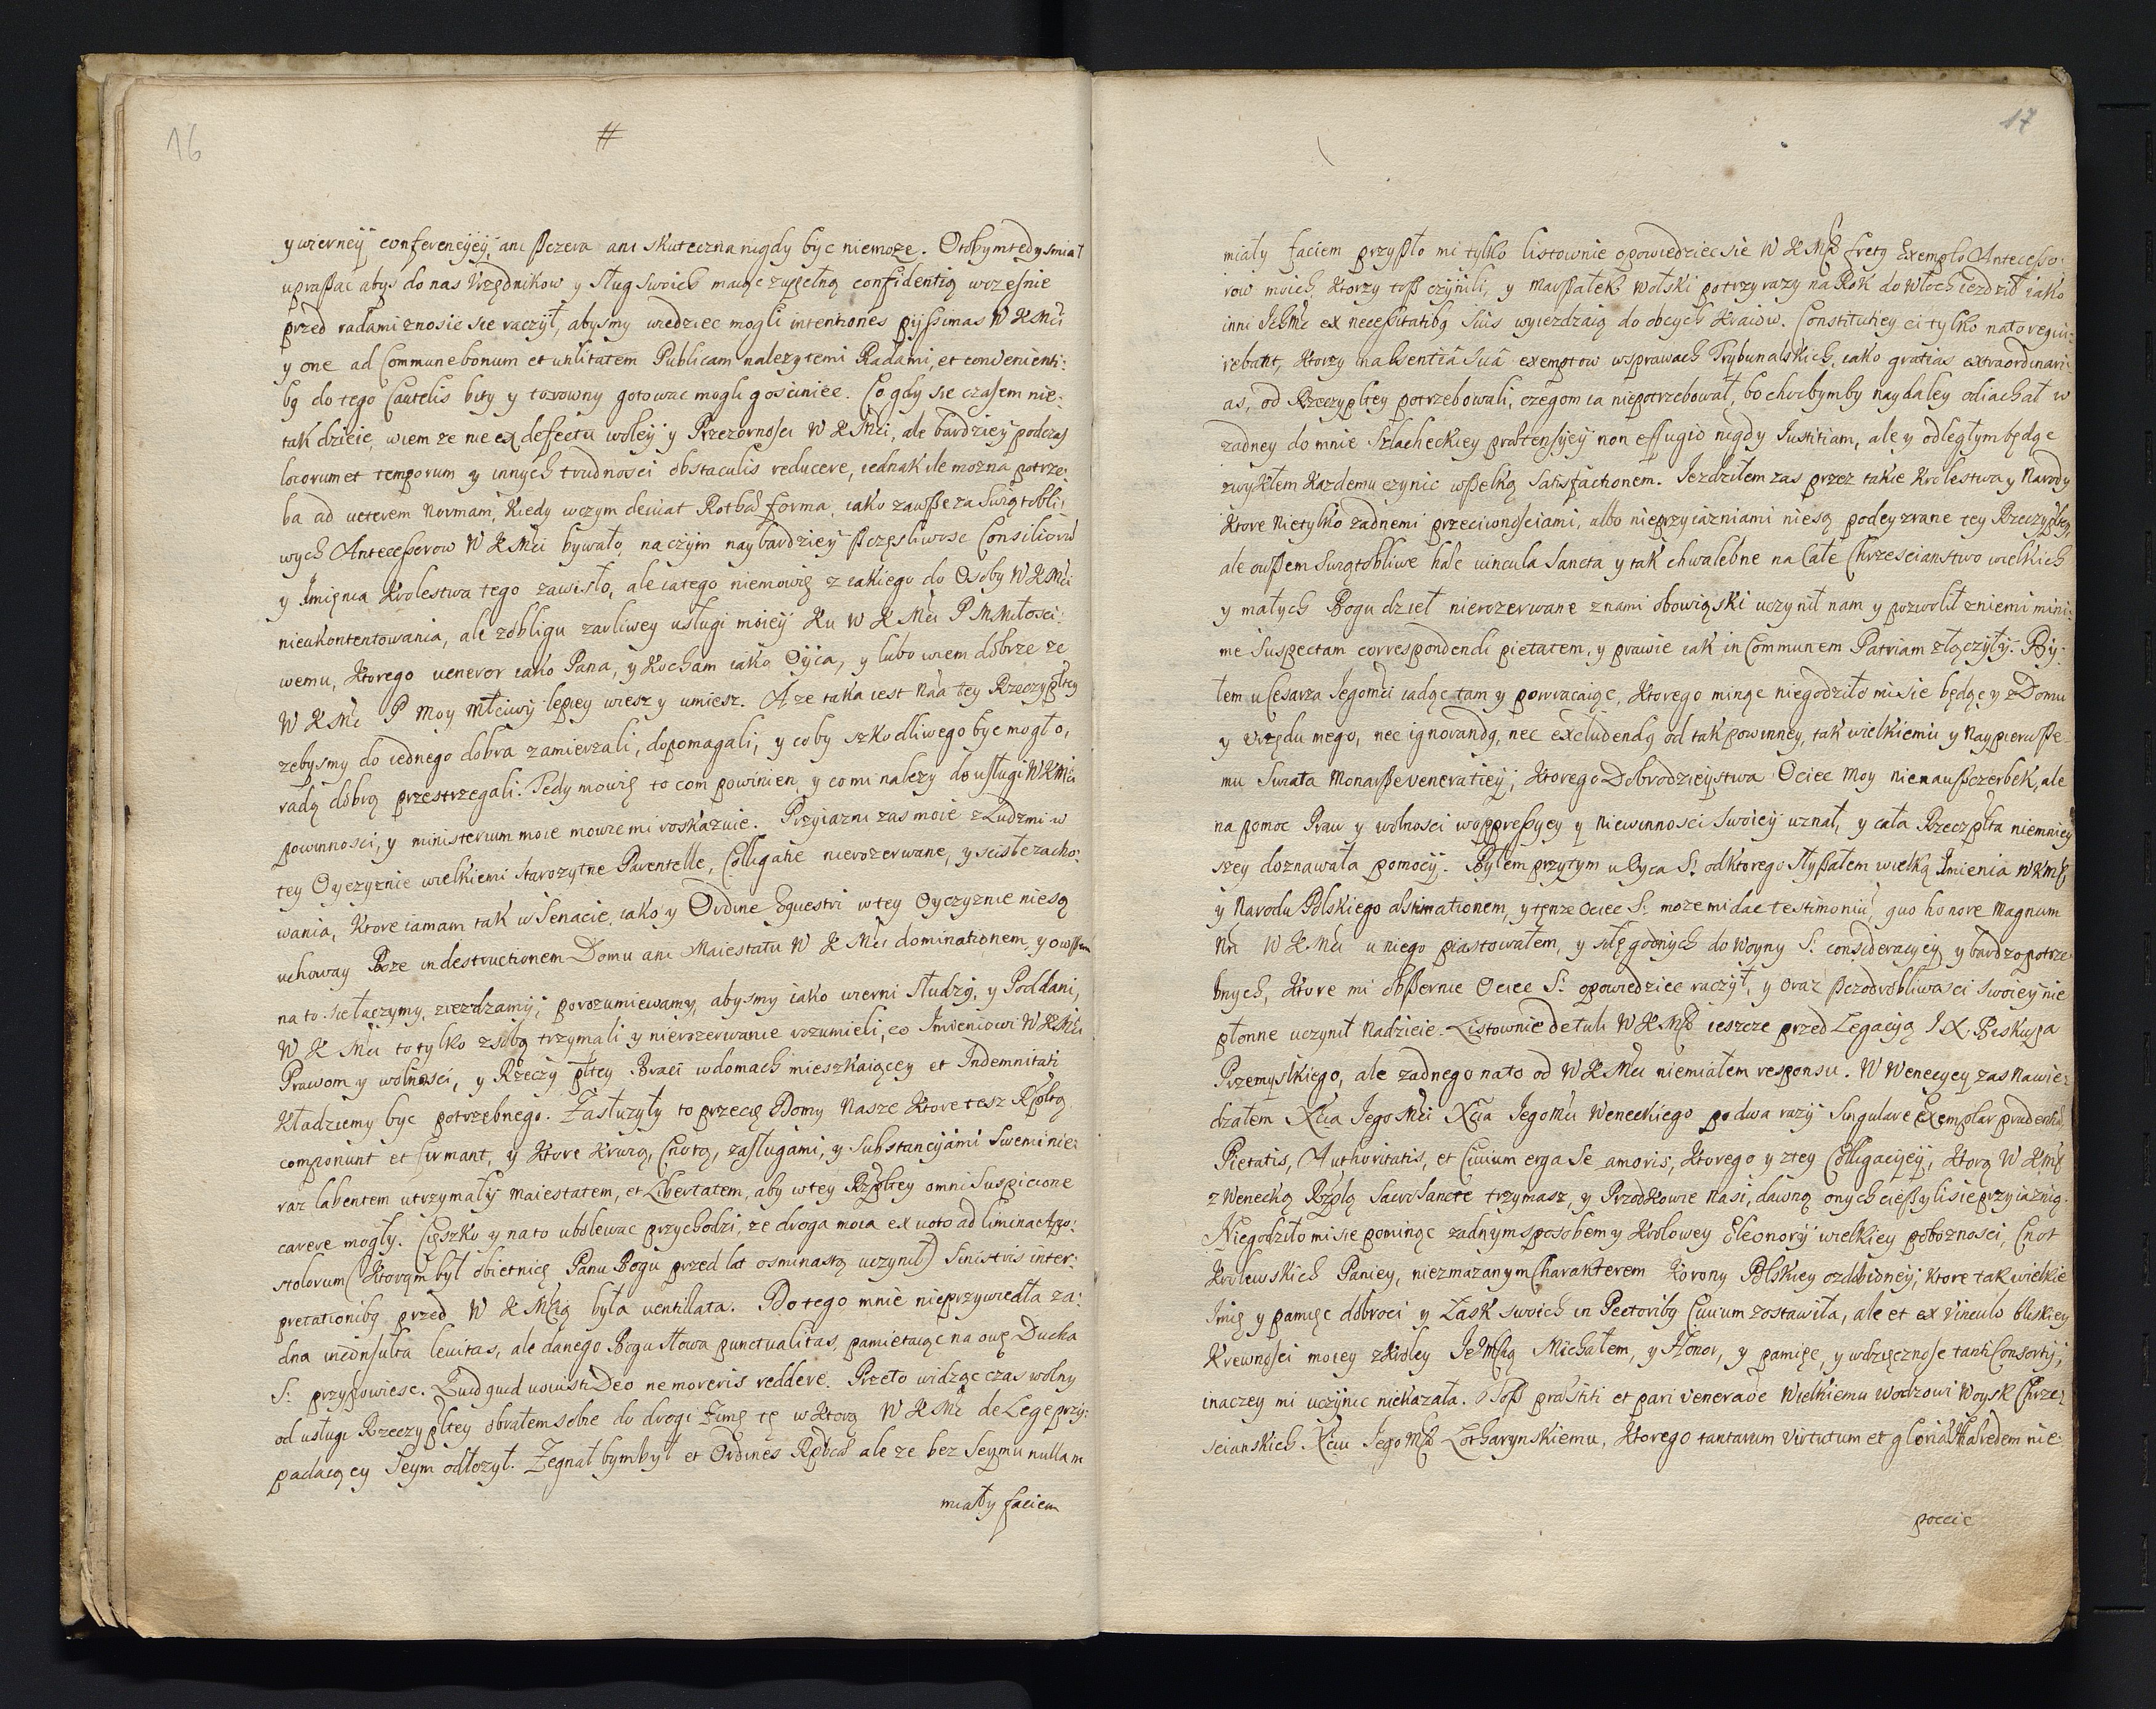 16
#
y wierneÿ conferencÿeÿ, ani ßczera ani skuteczna nigdy byc niemoze. Otobym tedy smiał
upraßac abys do nas Vrzędnikow y Sług swoich maiąc zupełną confidentią wczesnie
przed radami znosic sie raczył, abysmy wiedziec mogli intentiones pÿssimas W K Mci
y one ad Commune bonum et utilitatem Publicam nalezytemi Radami, et convenienti:
bq do tego Cautelis bity y torowny gotowac mogli gosciniec. Co gdy sie czasem nie:
tak dzieie, wiem ze ne ex defectu woleÿ y Przezornosci W K Mci, ale bardzieÿ podczas
locorum et temporum y innych trudnosci obstaculis reducere, iednak ile mozna potrze:
ba ad veterem Normam, kiedy wczym deviat Rotba forma, iako zawße za Swiątobli:
wych Antecessorow W K Mci bywało, na czÿm naÿbardzieÿ ßczęsliwosc Consiliorũ
y Imięnia Krolestwa tego zawisło, ale ia tego niemowię z iakiego do Osoby W K Mci
nieukontentowania, ale z obligu zarliwey usługi moieÿ Ku W K Mci P M Miłosci:
wemu, Ktorego veneror iako Pana, y Kocham iako Oÿca, y lubo wiem dobrze ze
W K Mc P Moy Młciwÿ lepiey wiesz y umiesz. A ze taka iest Nãa tey Rzeczypltey
zebysmy do iednego dobra zamierzali, dopomagali, y coby szkodliwego byc mogło,
radą dobrą przestrzegali. Tedy mowię to com powinien, y co mi nalezy do usługi W K Mci
powinnosci, y ministerium moie mowic mi roskazuie. Przyiazni zas moie z Ludzmi w
tey Oyczyznie wielkiemi starozytne Parentelle, Colligatie nierozerwane, y scisłe zacho:
wania, Ktore ia mam tak w Senacie, iako y Ordine Equestri w tey Oyczyznie niesą
uchoway Boze in destructionem Domu ani Maiestatu W K Mci dominationem, y owßem
na to sie łączymy, ziezdzamÿ, porozumiewamy, abysmy iako wierni Studzÿ, y Poddani,
W K Mci to tylko z sobą trzymali y nierozerwanie rozumieli, co Imieniowi W K Mci
Prawom y wolnosci, y Rzeczy pltey Braci w domach mieszkaiącey et Indemnitati
Kładziemy byc potrzebnego. Zasłuzyły to przecię Domy Nasze Ktore tesz Rpltą
componunt et firmant, y Ktore Krwią, Cnotą, zasługami, y Substancÿami swemi nie:
raz labentem utrzymałÿ Maiestatem, et Libertatem, aby w tey Rzpltey omni Suspicione
carere mogły. Cięszko y na to ubolewac przychodzi, ze droga moia ex voto ad limina Apo:
stolorum (Ktorąm był obietnicę Panu Bogu przed lat osminastą uczynił) Sinistris inter:
pretationibq przed W K Mcią była ventillata. Do tego mnie nieprzywiedła za:
dna inconsulta levitas, ale danego Bogu słowa punctualitas, pamietaiąc na owę Ducha
S: przypowiesc. Quidquid vovisti Deo ne moreris reddere. Przeto widząc czas wolny
od usługi Rzeczypltey obrałem sobie do drogi Zimę tę w Ktorą W K Mc de Lege przy:
padaiący Seym odłozył. Zegnał bym był et Ordines Rpbcæ ale ze bez Seymu nullam
miały faciem
17
miały faciem przyßło mi tylko listownie opowiedziec sie W K Mci fretq Exemplo Antecesso:
row moich, Ktorzy toß czynili, y Marßałek Wolski po trzy razy na Rok do Włoch iezdził iako
inni Ichmc ex necessitatibq Suis wyiezdzaią do obcych Kraiow. Constitutiey ci tylko na to requi:
rebant, Ktorzy in absentiâ Suâ exemptow w sprawach Trybunalskich, iako gratias extraordinari:
as, od Rzeczypltey potrzebowali, czegom ia niepotrzebował, bo chocbym by naydaley odiachał w
zadney do mnie Szlacheckiey prætensÿeÿ non effugio nigdy Iustitiam, ale y odległym będąc
zwykłem Kazdemu czynic wßelką Satisfactionem. Iezdziłem zas przez takie Krolestwa y Narody
Ktore nietylko zadnemi przeciwnosciami, albo nieprzyiazniami niesą podeyzrane tey Rzeczypltey,
ale owßem Swiątobliwe hæc vincula Sancta y tak chwalebne na Całe Chrzescianstwo wielkich
y małych Bogu dzieł nierozerwane z nami obowiąski uczynił nam y pozwolił z niemi mini:
me Suspectam correspondendi pietatem, y prawie iak in Communem Patriam złączyłÿ. By:
łem u Cesarza Iegomci iadąc tam y powracaiąc, Ktorego minąc niegodziło mi sie będąc y z Domu
y Vrzędu mego, nec ignorandq, nec excludendq od tak powinney, tak wielkiemu y Naypierwße:
mu Swiata Monarße veneratieÿ, Ktorego Dobrodzieÿstwa Ociec Moy nie na ußczerbek, ale
na pomoc Praw y wolnosci w oppressÿey y Niewinnosci Swoieÿ uznał, y cała Rzeczplta niemniey
szey doznawała pomocÿ. Byłem przytym u Oyca S: od ktorego słyßałem wielką Imienia W K Mci
y Narodu Polskiego æstimationem, y tenze Ociec S: moze mi dac testimoniũ, quo honore Magnum
Nn W K Mci u niego piastowałem, y sił godnych do Woyny S: consideracyiÿ y bardzo potrze:
bnych, Ktore mi obßernie Ociec S: opowiedziec raczył, y oraz ßczodrobliwosci Swoieÿ nie
płonne uczynił Nadzieie. Listownie detuli W K Mci ieszcze przed Legacÿą I X. Biskupa
Przemyslkiego, ale zadnego na to od W K Mci niemiałem responsu. W Wenecyey zas Nawie:
dzałem Xcia Iego Mci Xcia IegoMci Weneckiego po dwa razÿ Singulare Exemplar prudentiæ,
Pietatis, Authoritatis, et Civium erga Se amoris, Ktorego y z tey Colligacÿeÿ, Ktorą W K Mć
z Wenecką Rzplą Sacrosancte trzymasz, y Przodkowie Nasi, dawną onych cießyli sie przyiaznią.
Niegodziło mi sie pominąc zadnym sposobem y Krolowey Eleonorÿ wielkiey poboznosci, Cnot
Krolewskich Paniey, niezmazanym Charakterem Korony Polskiey ozdobioneÿ, Ktore tak wielkie
Imię y pamięc dobroci y Łask swoich in Pectoribq Civium zostawiła, ale et ex Vinculo bliskiey
Krewnosci moiey z Kroley Iehmścią Michałem, y Honor, y pamięc, y wdzięcznosc tanti Consortÿ,
inaczey mi uczynic niekazała. Toß præstiti et pari Veneraõe Wielkiemu Wodzowi Woysk Chrze:
scianskich. Xciu Iego Mci Lotharynskiemu, Ktorego tantarum Virtutum et gloriæ Hæredem nie:
poccic